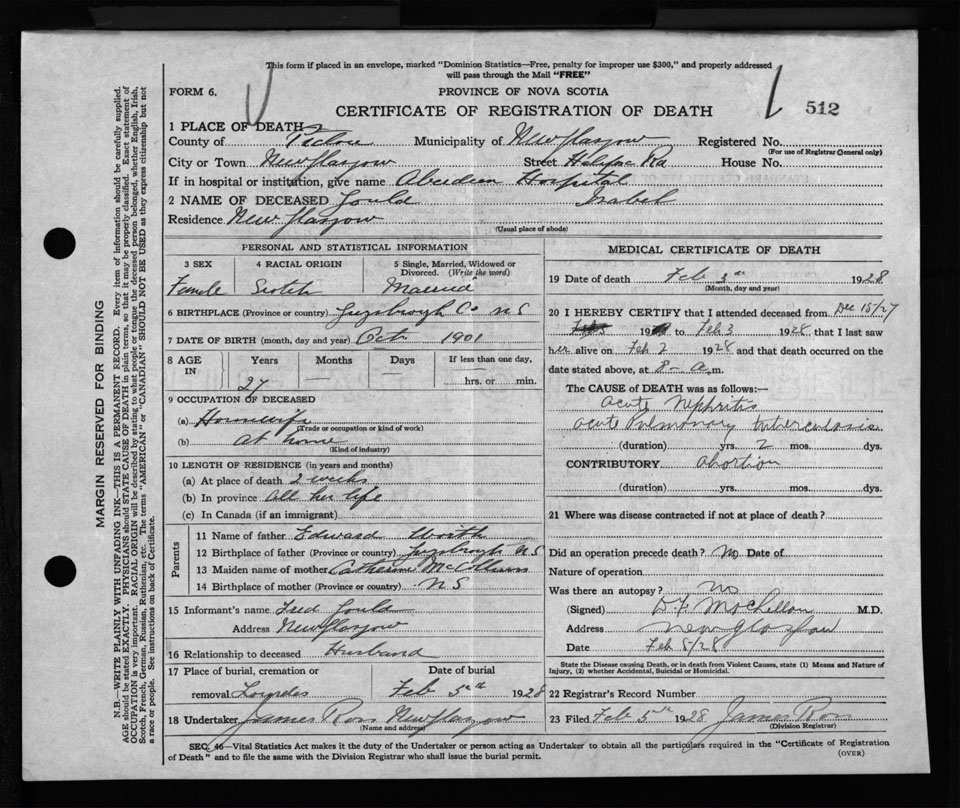 This form if placed in an envelope, marked "Dominion Statistics—Free, penalty for improper use $300," and properly addressed
will pass through the Mail "FREE"
FORM 6.
PROVINCE OF NOVA SCOTIA
CERTIFICATE OF REGISTRATION OF DEATH
512
1 PLACE OF DEATH
County of Pictou Municipality of New Glasgow Registered No.
(For use of Registrar General only)
City or Town New Glasgow Street Rd House No.
If in hospital or institution, give name Aberdeen Hospital
2 NAME OF DECEASED Gould Isabel
Residence New Glasgow
(Usual place of abode)
PERSONAL AND STATISTICAL INFORMATION
3 SEX 4 RACIAL ORIGIN 5 Single, Married, Widowed or
Divorced. (Write the word)
Female Scotch Married
6 BIRTHPLACE (Province or country) Guysbrough Co N S
7 DATE OF BIRTH (month, day and year) Oct 1901
8 AGE IN Years Months Days If less than one day,
27 — — hrs. or min.
9 OCCUPATION OF DECEASED
(a) Housewife
(Trade or occupation or kind of work)
(b) at home
(Kind of industry)
10 LENGTH OF RESIDENCE (in years and months)
(a) At place of death 2 weeks
(b) In province all her life
(c) In Canada (if an immigrant)
Parents
11 Name of father Edward Worth
12 Birthplace of father (Province or country) Guysbrough N S
13 Maiden name of mother Catherine
14 Birthplace of mother (Province or country) N S
15 Informant's name Fred Gould
Address New Glasgow
16 Relationship to deceased Husband
17 Place of burial, cremation or Date of burial
removal Lourdes Feb 5th 1928
18 Undertaker James Ross New Glasgow
(Name and address)
MEDICAL CERTIFICATE OF DEATH
19 Date of death Feb 3rd 1928
(Month, day and year)
20 I HEREBY CERTIFY that I attended deceased from Dec 15/27
19 to Feb 3 1928 that I last saw
her alive on Feb 2 1928 and that death occurred on the
date stated above, at 8- a.m.
The CAUSE OF DEATH was as follows:—
acute Nephritis
acute Pulmonary tuberculosis
(duration) yrs. 2 mos. dys.
CONTRIBUTORY abortion
(duration) yrs. mos. dys.
21 Where was disease contracted if not at place of death?
Did an operation precede death? No Date of
Nature of operation
Was there an autopsy? no
(Signed) M.D.
Address New Glasgow
Date Feb 5/28
State the Disease causing Death, or in death from Violent Causes, state (1) Means and Nature of
Injury, (2) whether Accidental, Suicidal or Homicidal.
22 Registrar's Record Number
23 Filed Feb 5th 1928 James Ross
(Division Registrar)
SEC. 46—Vital Statistics Act makes it the duty of the Undertaker or person acting as Undertaker to obtain all the particulars required in the "Certificate of Registration
of Death" and to file the same with the Division Registrar who shall issue the burial permit.
(OVER)
MARGIN RESERVED FOR BINDING
N.B.—WRITE PLAINLY WITH UNFADING INK—THIS IS A PERMANENT RECORD. Every item of information should be carefully supplied.
AGE should be stated EXACTLY. PHYSICIANS should STATE CAUSE OF DEATH in plain terms, so that it may be properly classified. Exact statement of
OCCUPATION is very important. RACIAL ORIGIN will be described by stating to what people or tongue the deceased person belonged, whether English, Irish,
Scotch, French, German, Russian, Ruthenian, etc. The terms "AMERICAN" or "CANADIAN" SHOULD NOT BE USED as they express citizenship but not
a race or people. See instructions on back of Certificate.